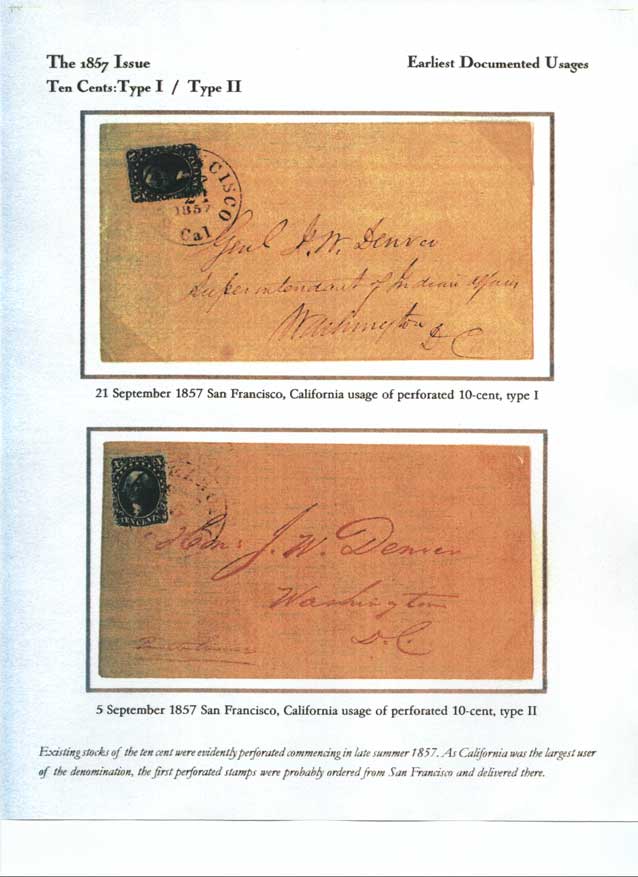 The 1857 Issue
Earliest Documented Usages
Ten Cents: Type I / Type II
CISCO
1857
Cal
Genl J. W. Denver
Superintendant of Indian Affairs
Washington
D C
21 September 1857 San Francisco, California usage of perforated 10-cent, type I
TEN CENTS
Hon: J. W. Denver
Washington
D.C.
5 September 1857 San Francisco, California usage of perforated 10-cent, type II
Existing stocks of the ten cent were evidently perforated commencing in late summer 1857. As California was the largest user
of the denomination, the first perforated stamps were probably ordered from San Francisco and delivered there.